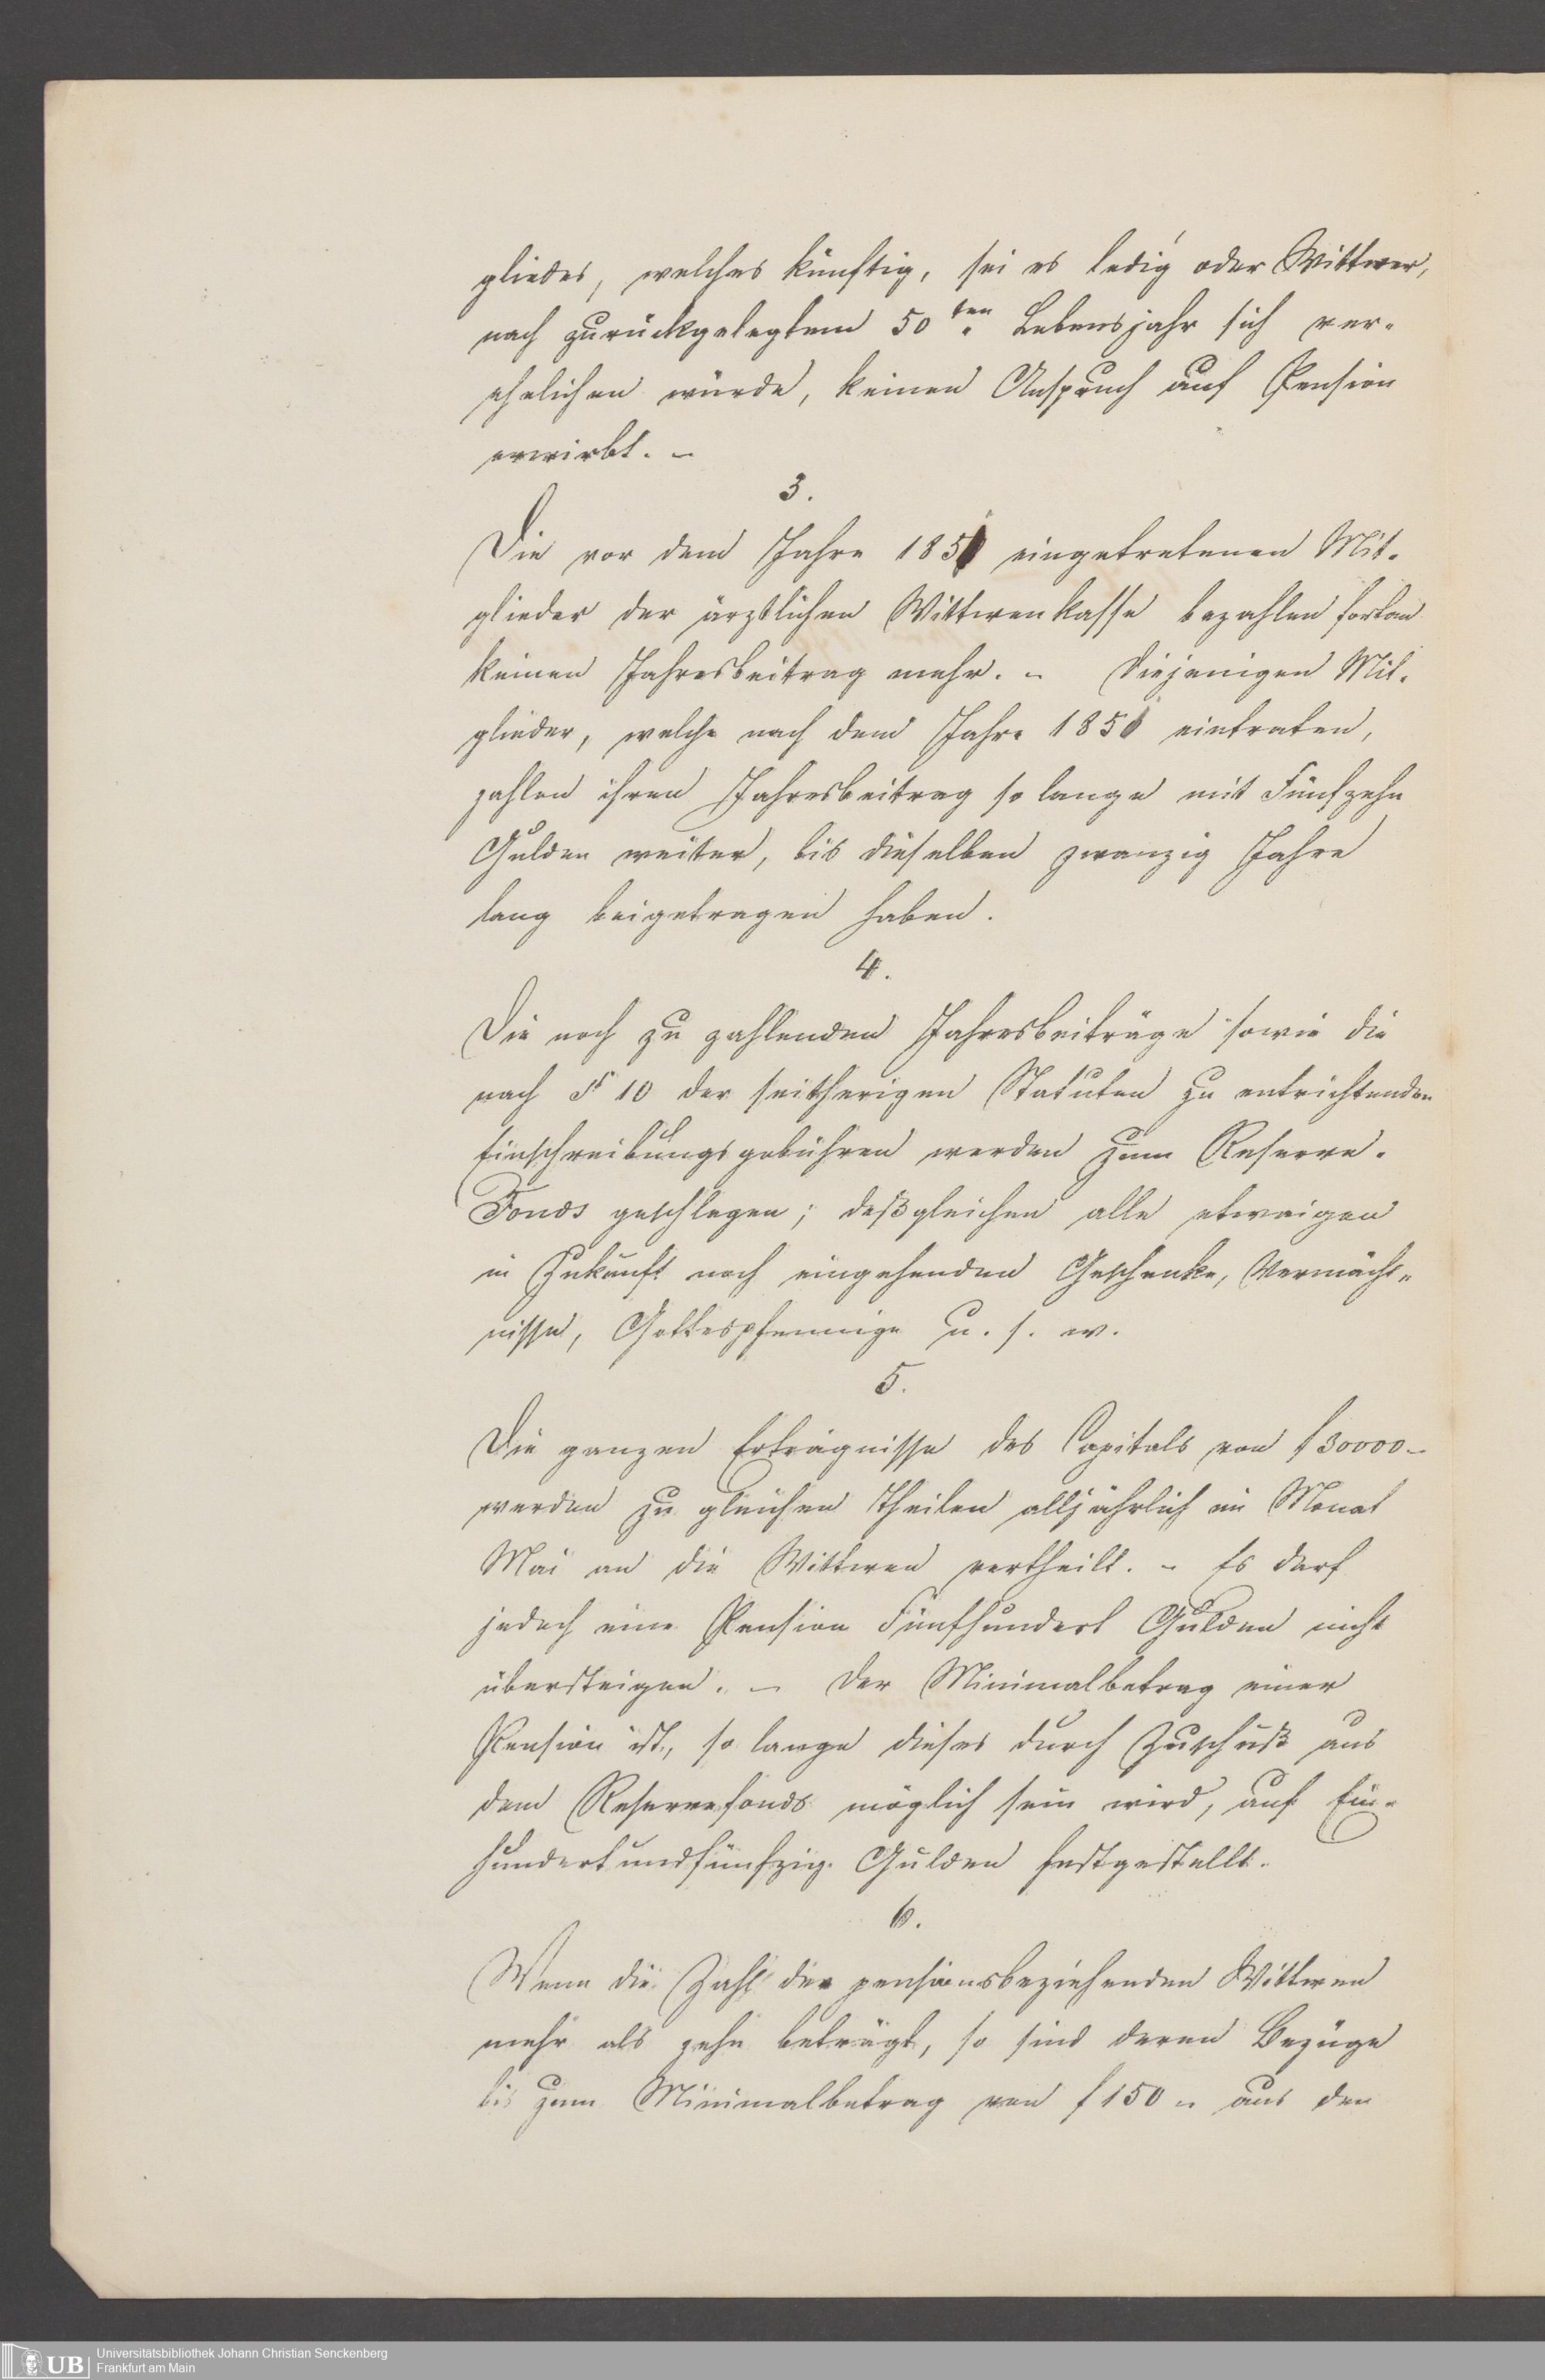 gliedes, welches künftig, sei es ledig oder Wittwer,
nach zurückgelegtem 50ten Lebensjahr sich ver-
ehelichen würde, keinen Anspruch auf Pension
erwirbt. –
3.
Die vor dem Jahre 1851 eingetretenen Mit-
glieder der ärztlichen Wittwenkasse bezahlen fortan
keinen Jahresbeitrag mehr. – Diejenigen Mit-
glieder, welche nach dem Jahre 1851 eintraten,
zahlen ihren Jahresbeitrag so lange mit Fünfzehn
Gulden weiter, bis dieselben zwanzig Jahre
lang beigetragen haben.
4.
Die noch zu zahlenden Jahresbeiträge sowie die
nach § 10 der seitherigen Statuten zu entrichtenden
Einschreibungsgebühren werden zum Reserve-
Fonds geschlagen; deßgleichen alle etwaigen
in Zukunft noch eingehenden Geschenke, Vermächt-
nisse, Gottespfennige u. s. w.
5.
Die ganzen Erträgnisse des Capitals von f 30000 –
werden zu gleichen Theilen alljährlich im Monat
Mai an die Wittwen vertheilt. – Es darf
jedoch eine Pension Fünfhundert Gulden nicht
übersteigen. – Der Minimalbetrag einer
Pension ist, so lange dieses durch Zuschuß aus
dem Reservefonds möglich sein wird, auf Ein-
hundertundfünfzig Gulden festgestellt.
6.
Wenn die Zahl der pensionsbeziehenden Wittwen
mehr als zehn beträgt, so sind deren Bezüge
bis zum Minimalbetrag von f 150 – aus den
UB
Universitätsbibliothek Johann Christian Senckenberg
Frankfurt am Main